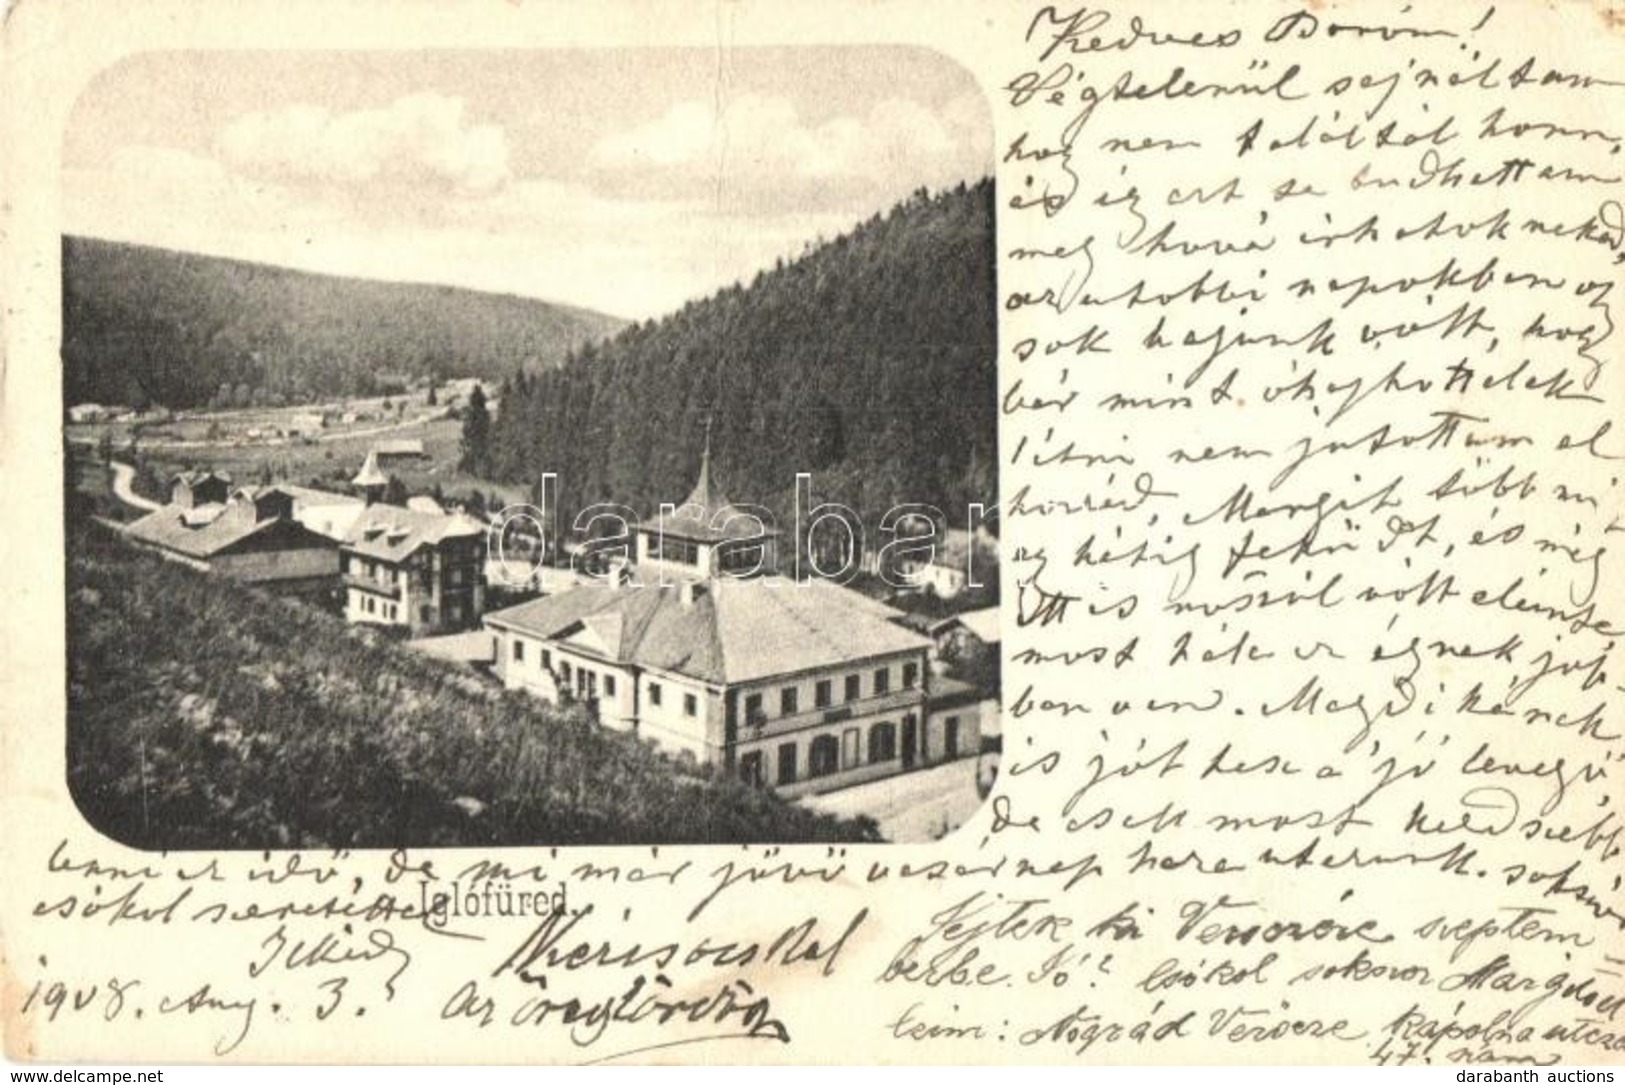 Kedves Doróm!
Végtelenül sajnáltam
hogy nem találtál honn,
és így azt se tudhattam
meg hová írhatok neked,
az utobbi napokban oly
sok bajunk vólt, hogy
bár mint óhajtottalak
látni nem jutottam el
hozzád, Margit több mi
egy hétig feküdt, és még
itt is rosszúl vólt eleinte,
most hála az égnek, job-
ban van. Magdikának
is jót tesz a jó levegő,
de csak most kezd szebb
lenni az idő, de mi már jövő vasárnap haza utazunk. sokszor
csókol szeretettel
Iglófüred.
1908. Aug. 3.
az öreg
Jöjtek ki Verőczére szeptem
berbe. Jó? Csókol sokszor Margitod
Czim: Nográd Verőcze Kápolna utcza
47. szám
darabanth
darabanth auctions
www.delcampe.net